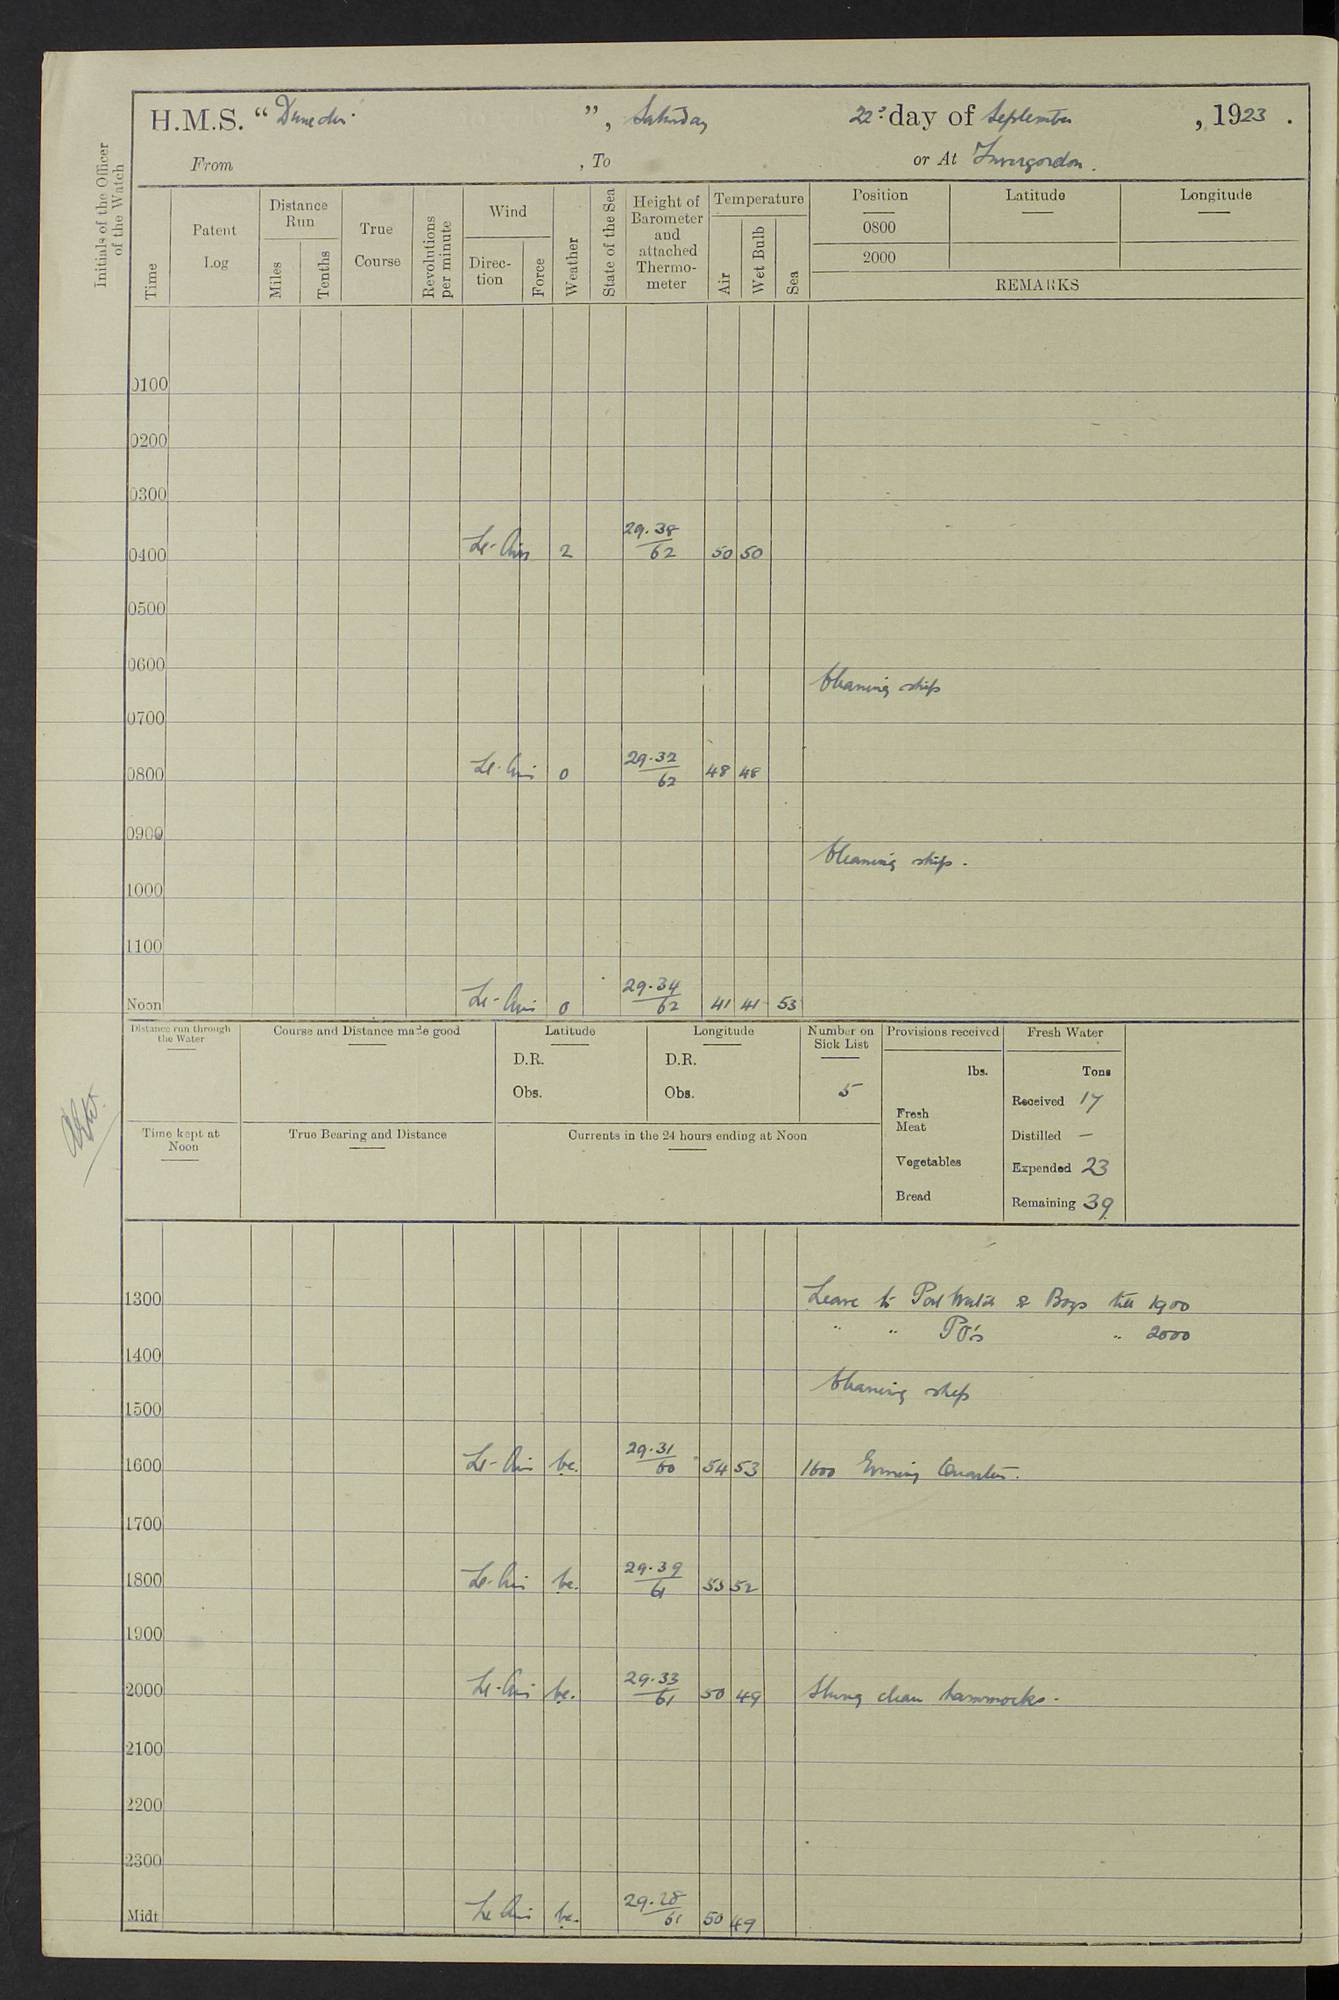 H.M.S. “Dunedin”, Saturday 22d day of September, 1923.
From , To or At Invergordon.
Initials of the Officer of the Watch
Time
Patent Log
Distance Run
Miles
Tenths
True Course
Revolutions per minute
Wind
Direc-tion
Force
Weather
State of the Sea
Height of Barometer and attached Thermo-meter
Temperature
Air
Wet Bulb
Sea
Position Latitude Longitude
0800
2000
REMARKS
0100
0200
0300
0400 Lt-Airs 2 29.38/62 50 50
0500
0600
Cleaning ship
0700
0800 Lt-Airs 0 29.32/62 48 48
0900
Cleaning ship.
1000
1100
Noon Lt-Airs 0 29.34/62 41 41 53
Distance run through the Water
Course and Distance made good
Latitude
D.R.
Obs.
Longitude
D.R.
Obs.
Number on Sick List
5
Provisions received
lbs.
Fresh Meat
Vegetables
Bread
Fresh Water
Tons
Received 17
Distilled —
Expended 23
Remaining 39
Time kept at Noon
True Bearing and Distance
Currents in the 24 hours ending at Noon
1300 Leave to Port Watch & Boys till 1900
" " PO's " 2000
1400
Cleaning ship
1500
1600 Lt-Airs bc. 29.31/60 54 53 1600 Evening Quarters.
1700
1800 Lt-Airs bc. 29.39/61 53 52
1900
2000 Lt-Airs bc. 29.33/61 50 49 Slung clean hammocks.
2100
2200
2300
Midt Lt Airs bc. 29.28/61 50 49